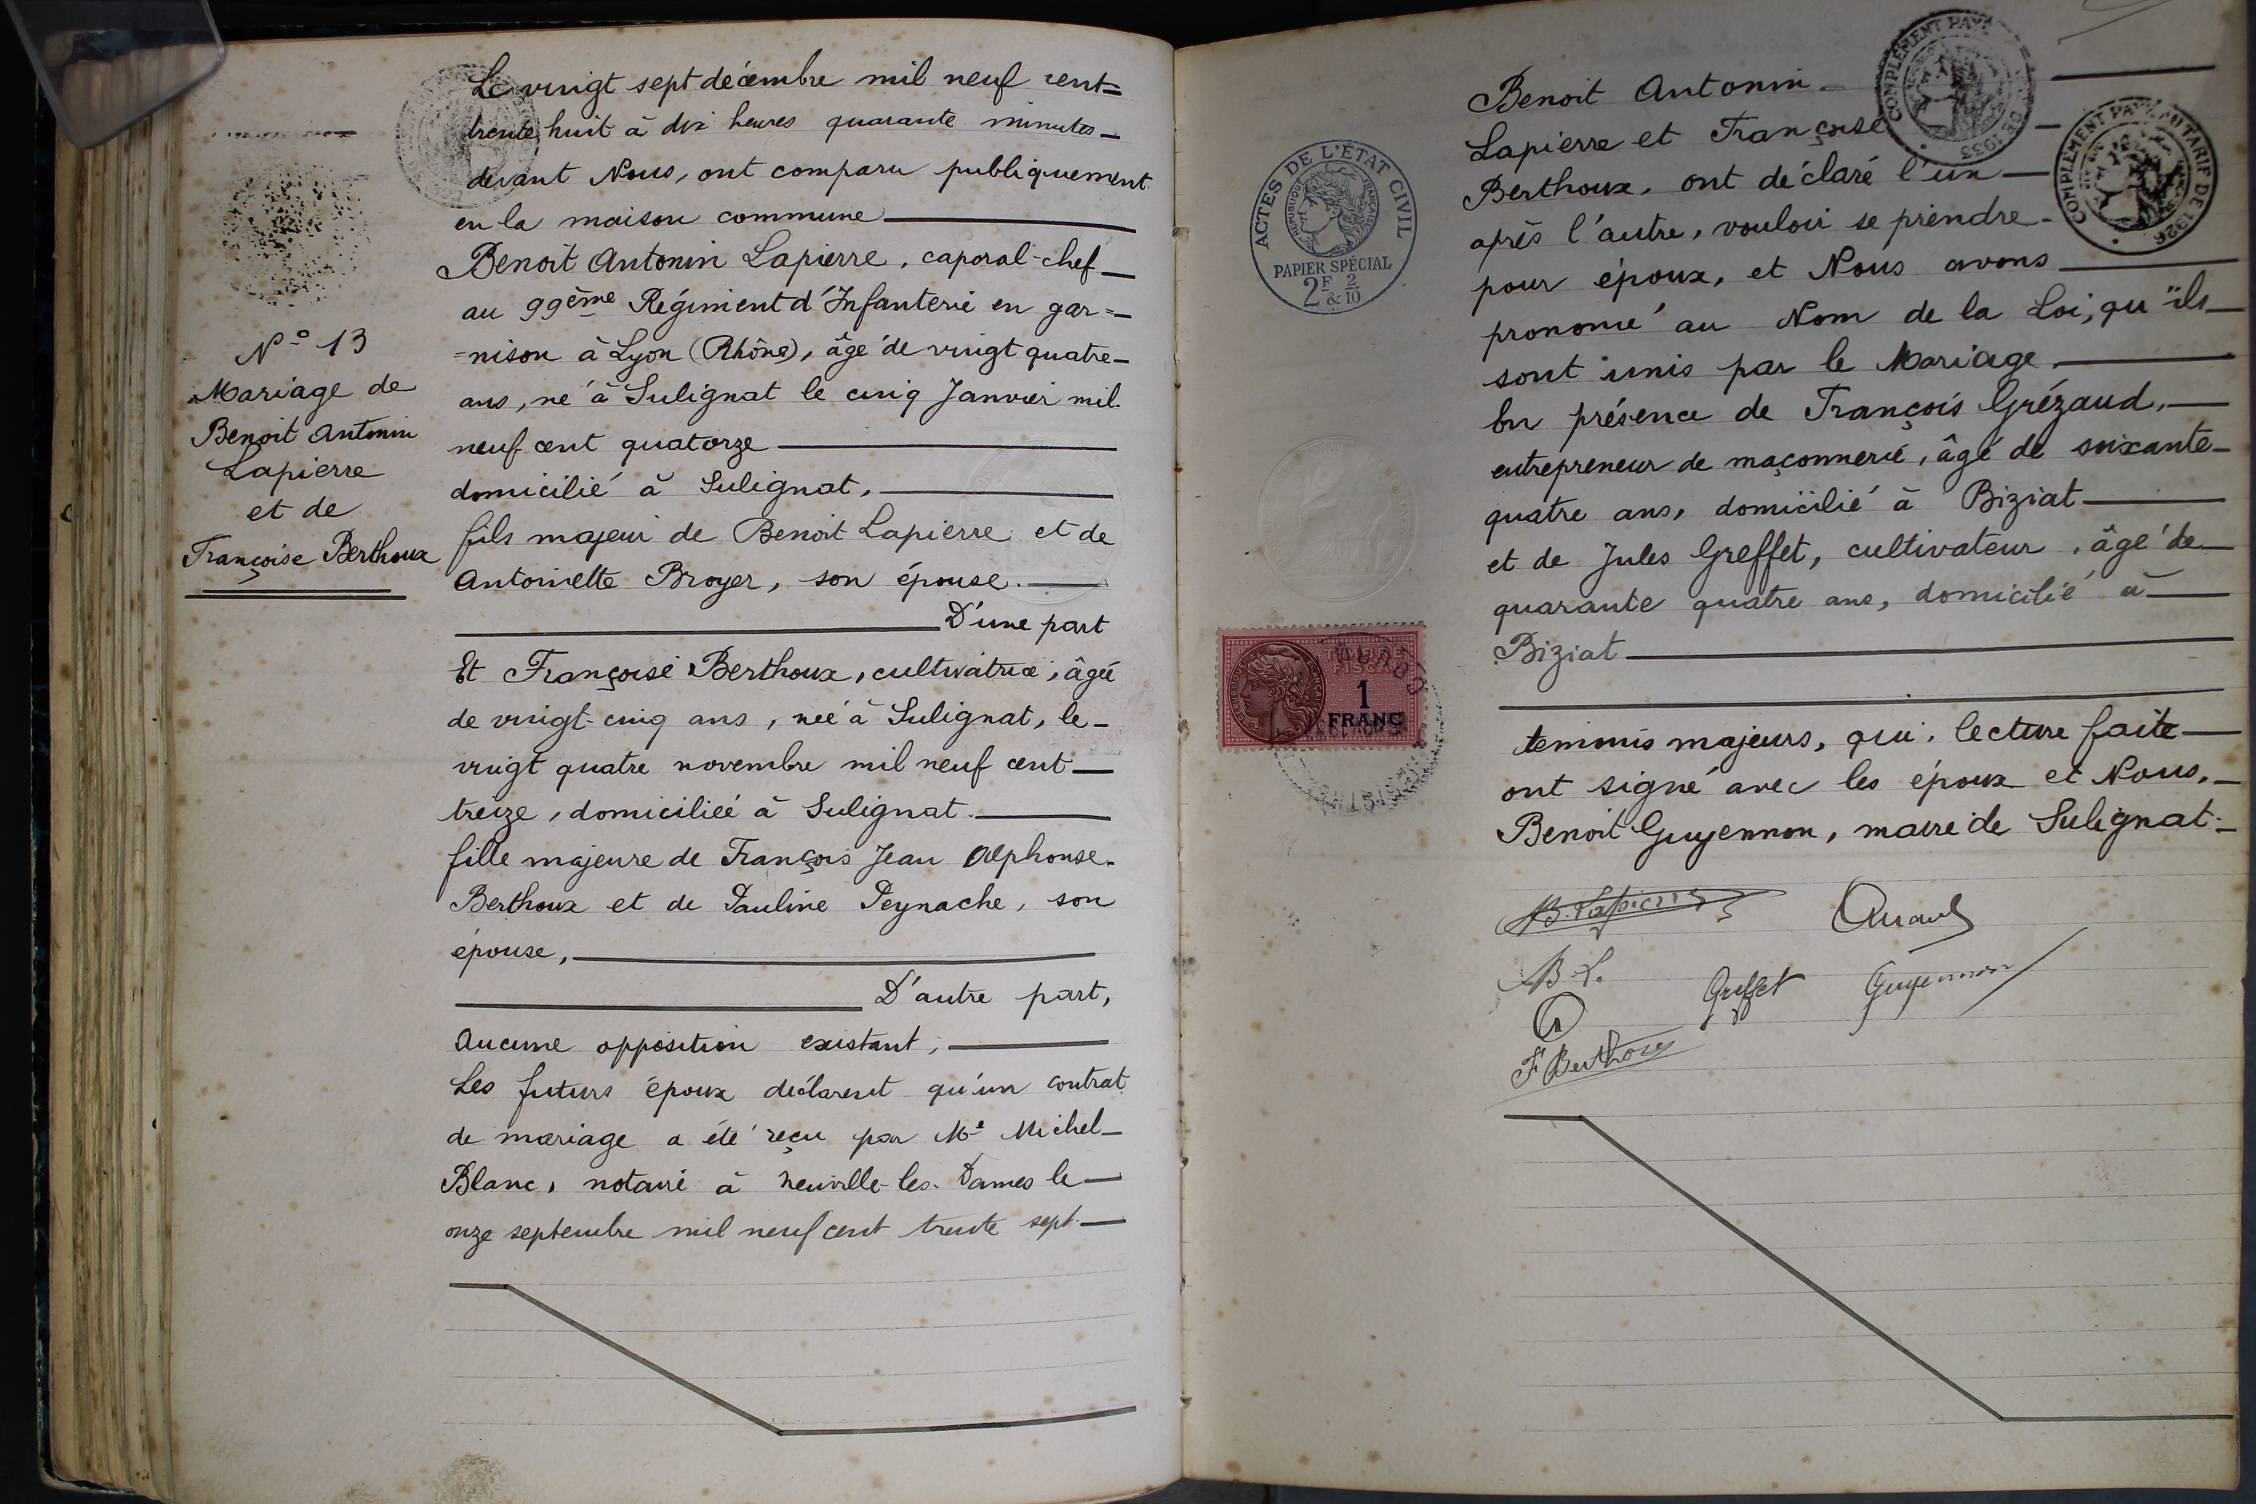 N° 13
Mariage de
Benoit Antonin
Lapierre
et de
Françoise Berthoux
Le vingt sept décembre mil neuf cent=
trente huit à dix heures quarante minutes
devant Nous, ont comparu publiquement
en la maison commune
Benoit Antonin Lapierre, caporal-chef
au 99ème Régiment d'Infanterie en gar=
=nison à Lyon (Rhône), âgé de vingt quatre
ans, né à Sulignat le cinq Janvier mil
neuf cent quatorze
domicilié à Sulignat,
fils majeur de Benoit Lapierre et de
Antoinette Broyer, son épouse.
D'une part
Et Françoise Berthoux, cultivatrice, âgée
de vingt-cinq ans, née à Sulignat, le
vingt quatre novembre mil neuf cent
treize, domiciliée à Sulignat.
fille majeure de François Jean Alphonse
Berthoux et de Pauline Peynache, son
épouse,
D'autre part,
Aucune opposition existant,
Les futurs époux déclarent qu'un contrat
de mariage a été reçu par Me Michel
Blanc, notaire à Neuville-les-Dames le
onze septembre mil neuf cent trente sept
Benoit Antonin
Lapierre et Françoise
Berthoux, ont déclaré l'un
après l'autre, vouloir se prendre
pour époux, et Nous avons
prononcé au Nom de la Loi, qu'ils
sont unis par le Mariage.
En présence de François Grézaud,
entrepreneur de maçonnerie, âgé de soixante
quatre ans, domicilié à Biziat
et de Jules Greffet, cultivateur, âgé de
quarante quatre ans, domicilié à
Biziat
temoins majeurs, qui, lecture faite
ont signé avec les époux et Nous,
Benoit Guyennon, maire de Sulignat
B. Lapierre
B. L.
Greffet
Guyennon
F Berthoux
ACTES DE L'ÉTAT CIVIL
RÉPUBLIQUE FRANÇAISE
PAPIER SPÉCIAL
2F & 2/10
TIMBRE
FISCAL
1
FRANC
COMPLÉMENT PAYÉ
DE 1933
COMPLÉMENT PAYÉ AU TARIF DE 1926